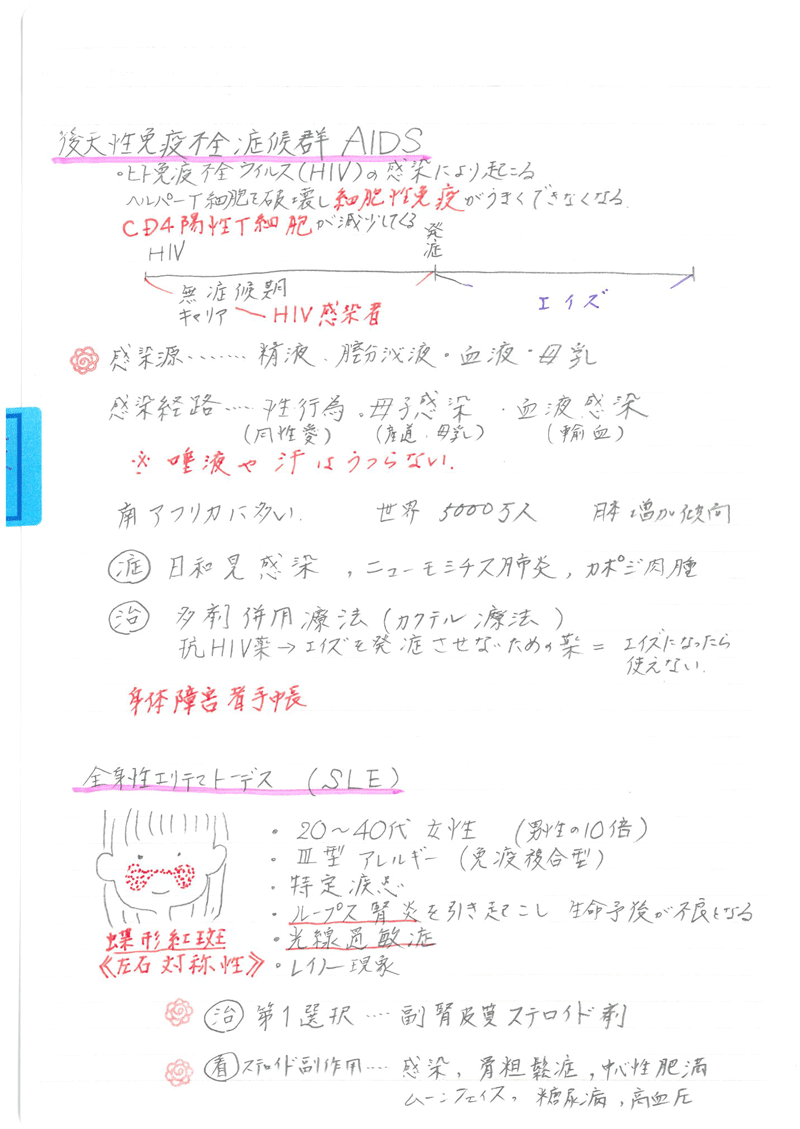 後天性免疫不全症候群 AIDS
・ヒト免疫不全ウイルス(HIV)の感染により起こる
ヘルパーT細胞を破壊し細胞性免疫がうまくできなくなる.
CD4陽性T細胞が減少してくる
発症
HIV
無症候期
エイズ
キャリア ー HIV感染者
感染源‥‥‥ 精液、膣分泌液・血液・母乳
感染経路‥‥ 性行為・母子感染・血液感染
(同性愛) (産道・母乳) (輸血)
※ 唾液や汗はうつらない.
南アフリカに多い. 世界 5000万人 日本 増加傾向
症 日和見感染, ニューモシスチス肺炎, カポジ肉腫
治 多剤併用療法(カクテル療法)
抗HIV薬→エイズを発症させないための薬 = エイズになったら
使えない.
身体障害者手帳
全身性エリテマトーデス (SLE)
・20〜40代 女性 (男性の10倍)
・Ⅲ型アレルギー (免疫複合型)
・特定疾患
・ループス腎炎を引き起こし 生命予後が不良となる
蝶形紅斑
・光線過敏症
《左右対称性》
・レイノー現象
治 第1選択‥‥ 副腎皮質ステロイド剤
看 ステロイド副作用‥‥ 感染, 骨粗鬆症, 中心性肥満
ムーンフェイス, 糖尿病, 高血圧